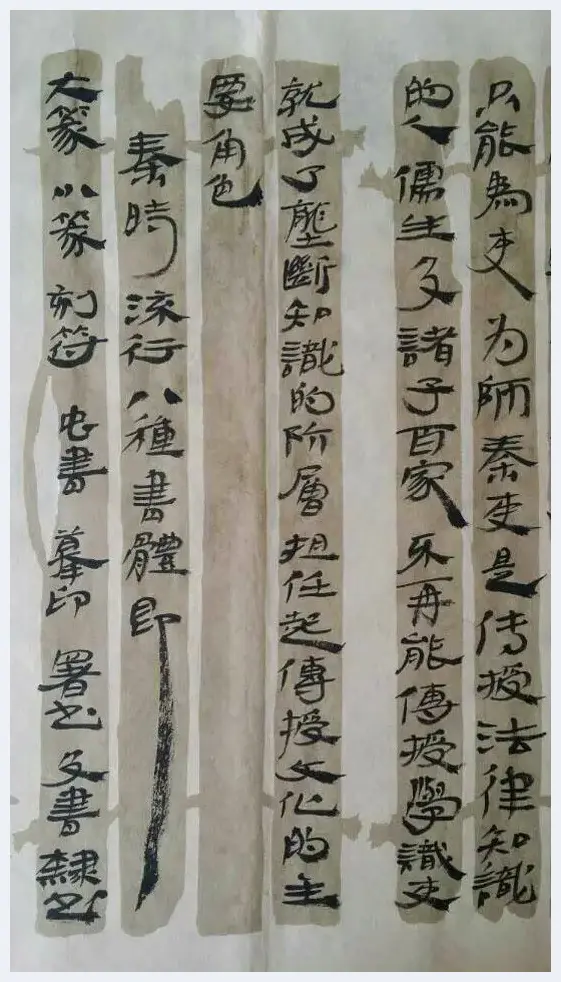 只能為吏为師秦吏是传授法律知識
的人儒生及諸子百家不再能傳授學識吏
就成了壟斷知識的阶層担任起傳授文化的主
要角色
秦時流行八種書體即
大篆小篆刻符虫書摹印署书殳書隸书